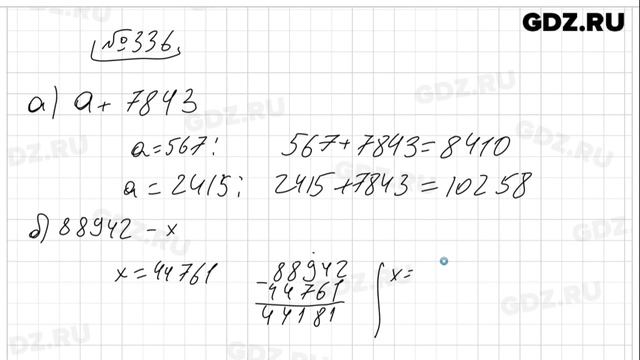 GDZ.RU
№336
а) a + 7843
a = 567: 567 + 7843 = 8410
a = 2415: 2415 + 7843 = 10258
б) 88942 - x
x = 44761
88942
- 44761
44181
x =